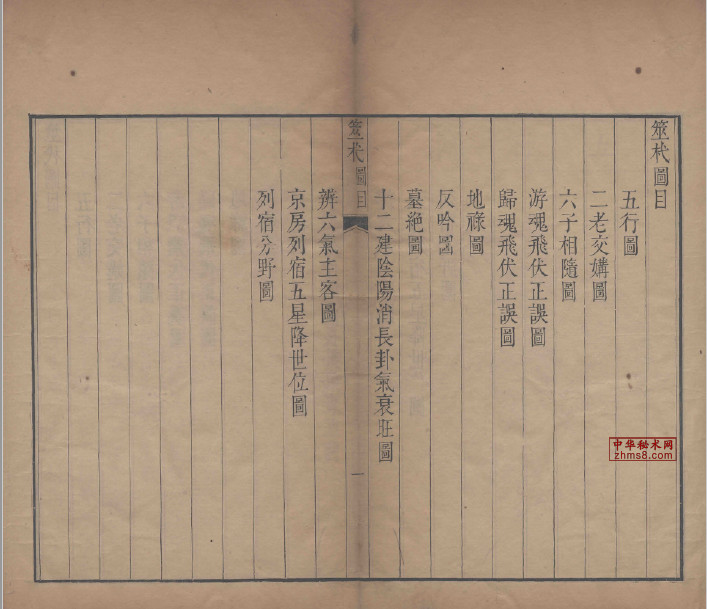 筮杙圖目
五行圖
二老交媾圖
六子相隨圖
游魂飛伏正誤圖
歸魂飛伏正誤圖
地祿圖
反吟圖
墓絶圖
十二建陰陽消長卦氣衰旺圖
筮杙圖目
一
辨六氣主客圖
京房列宿五星降世位圖
列宿分野圖
中华秘术网
zhms8.com